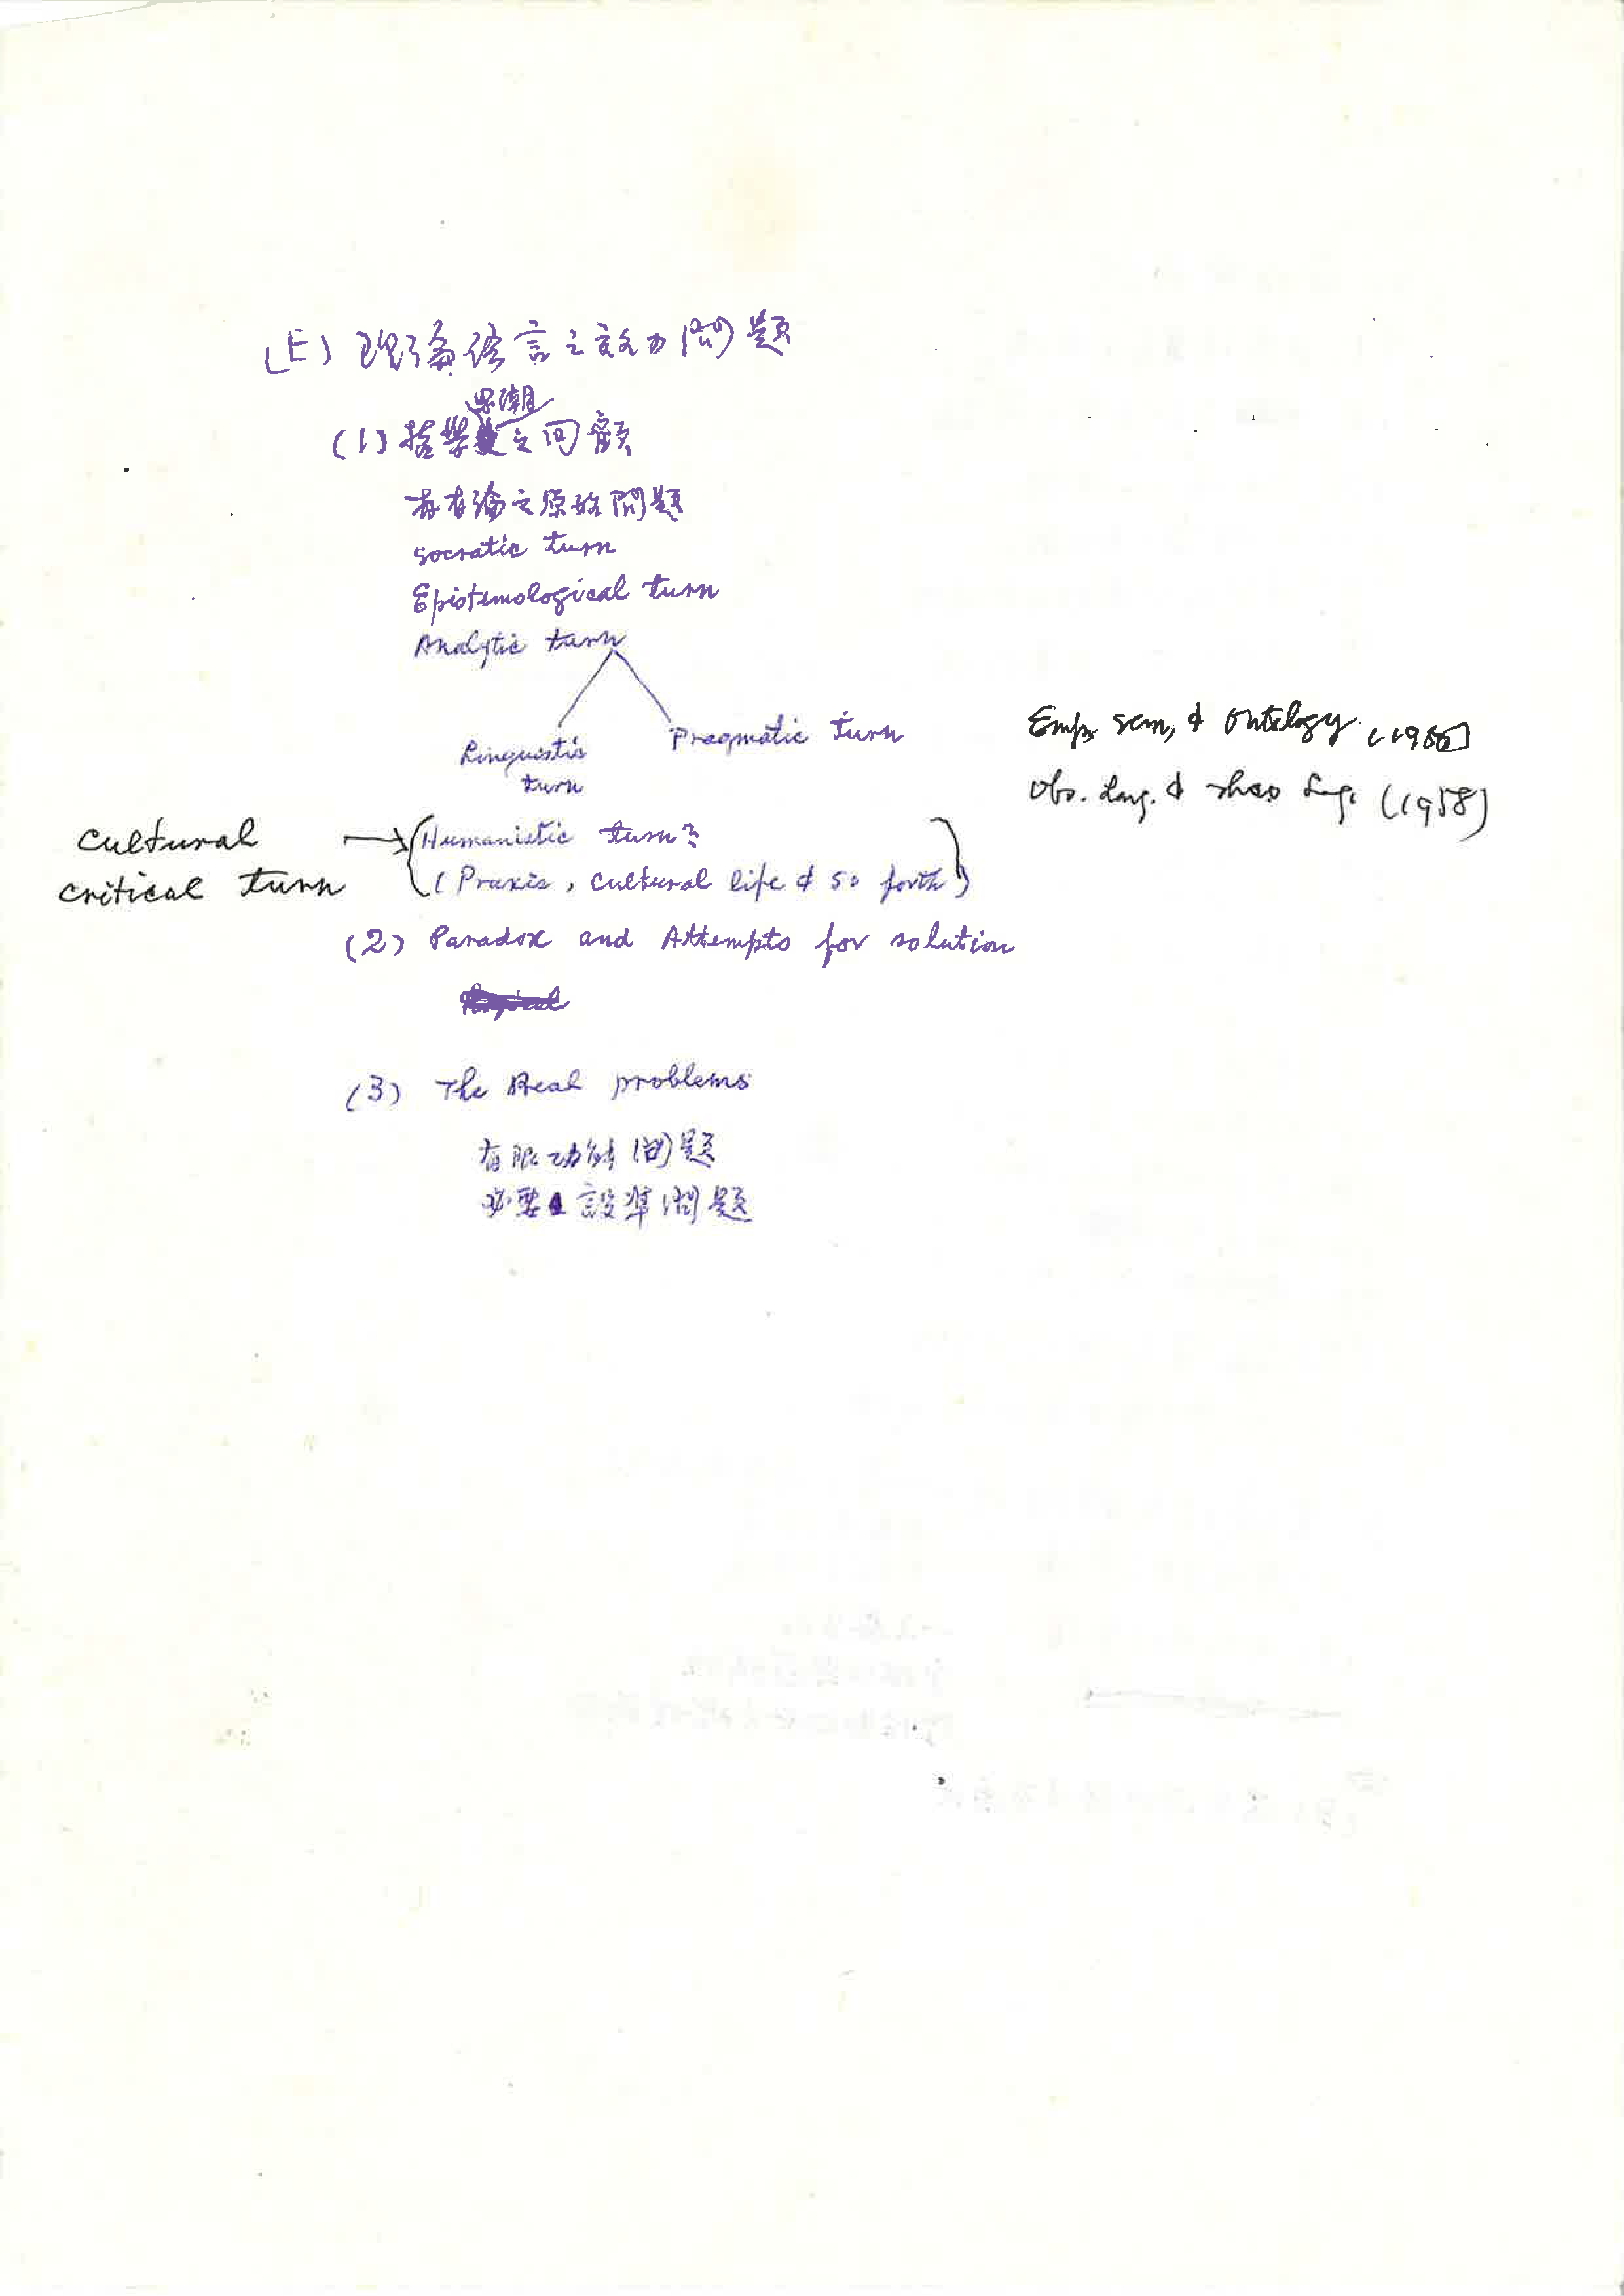 (E) 理論語言之效力問題
思潮
(1) 哲學之回顧
存有論之原始問題
Socratic turn
Epistemological turn
Analytic turn
Linguistic turn
Pragmatic turn
Emp. sem, & Ontology (1950)
Obs. Lang. & Theo Lag. (1958)
Cultural critical turn → (Humanistic turn?
(Praxis, Cultural life & so forth)
(2) Paradox and Attempts for solution
(3) The Real problems
有限功能問題
必要設準問題